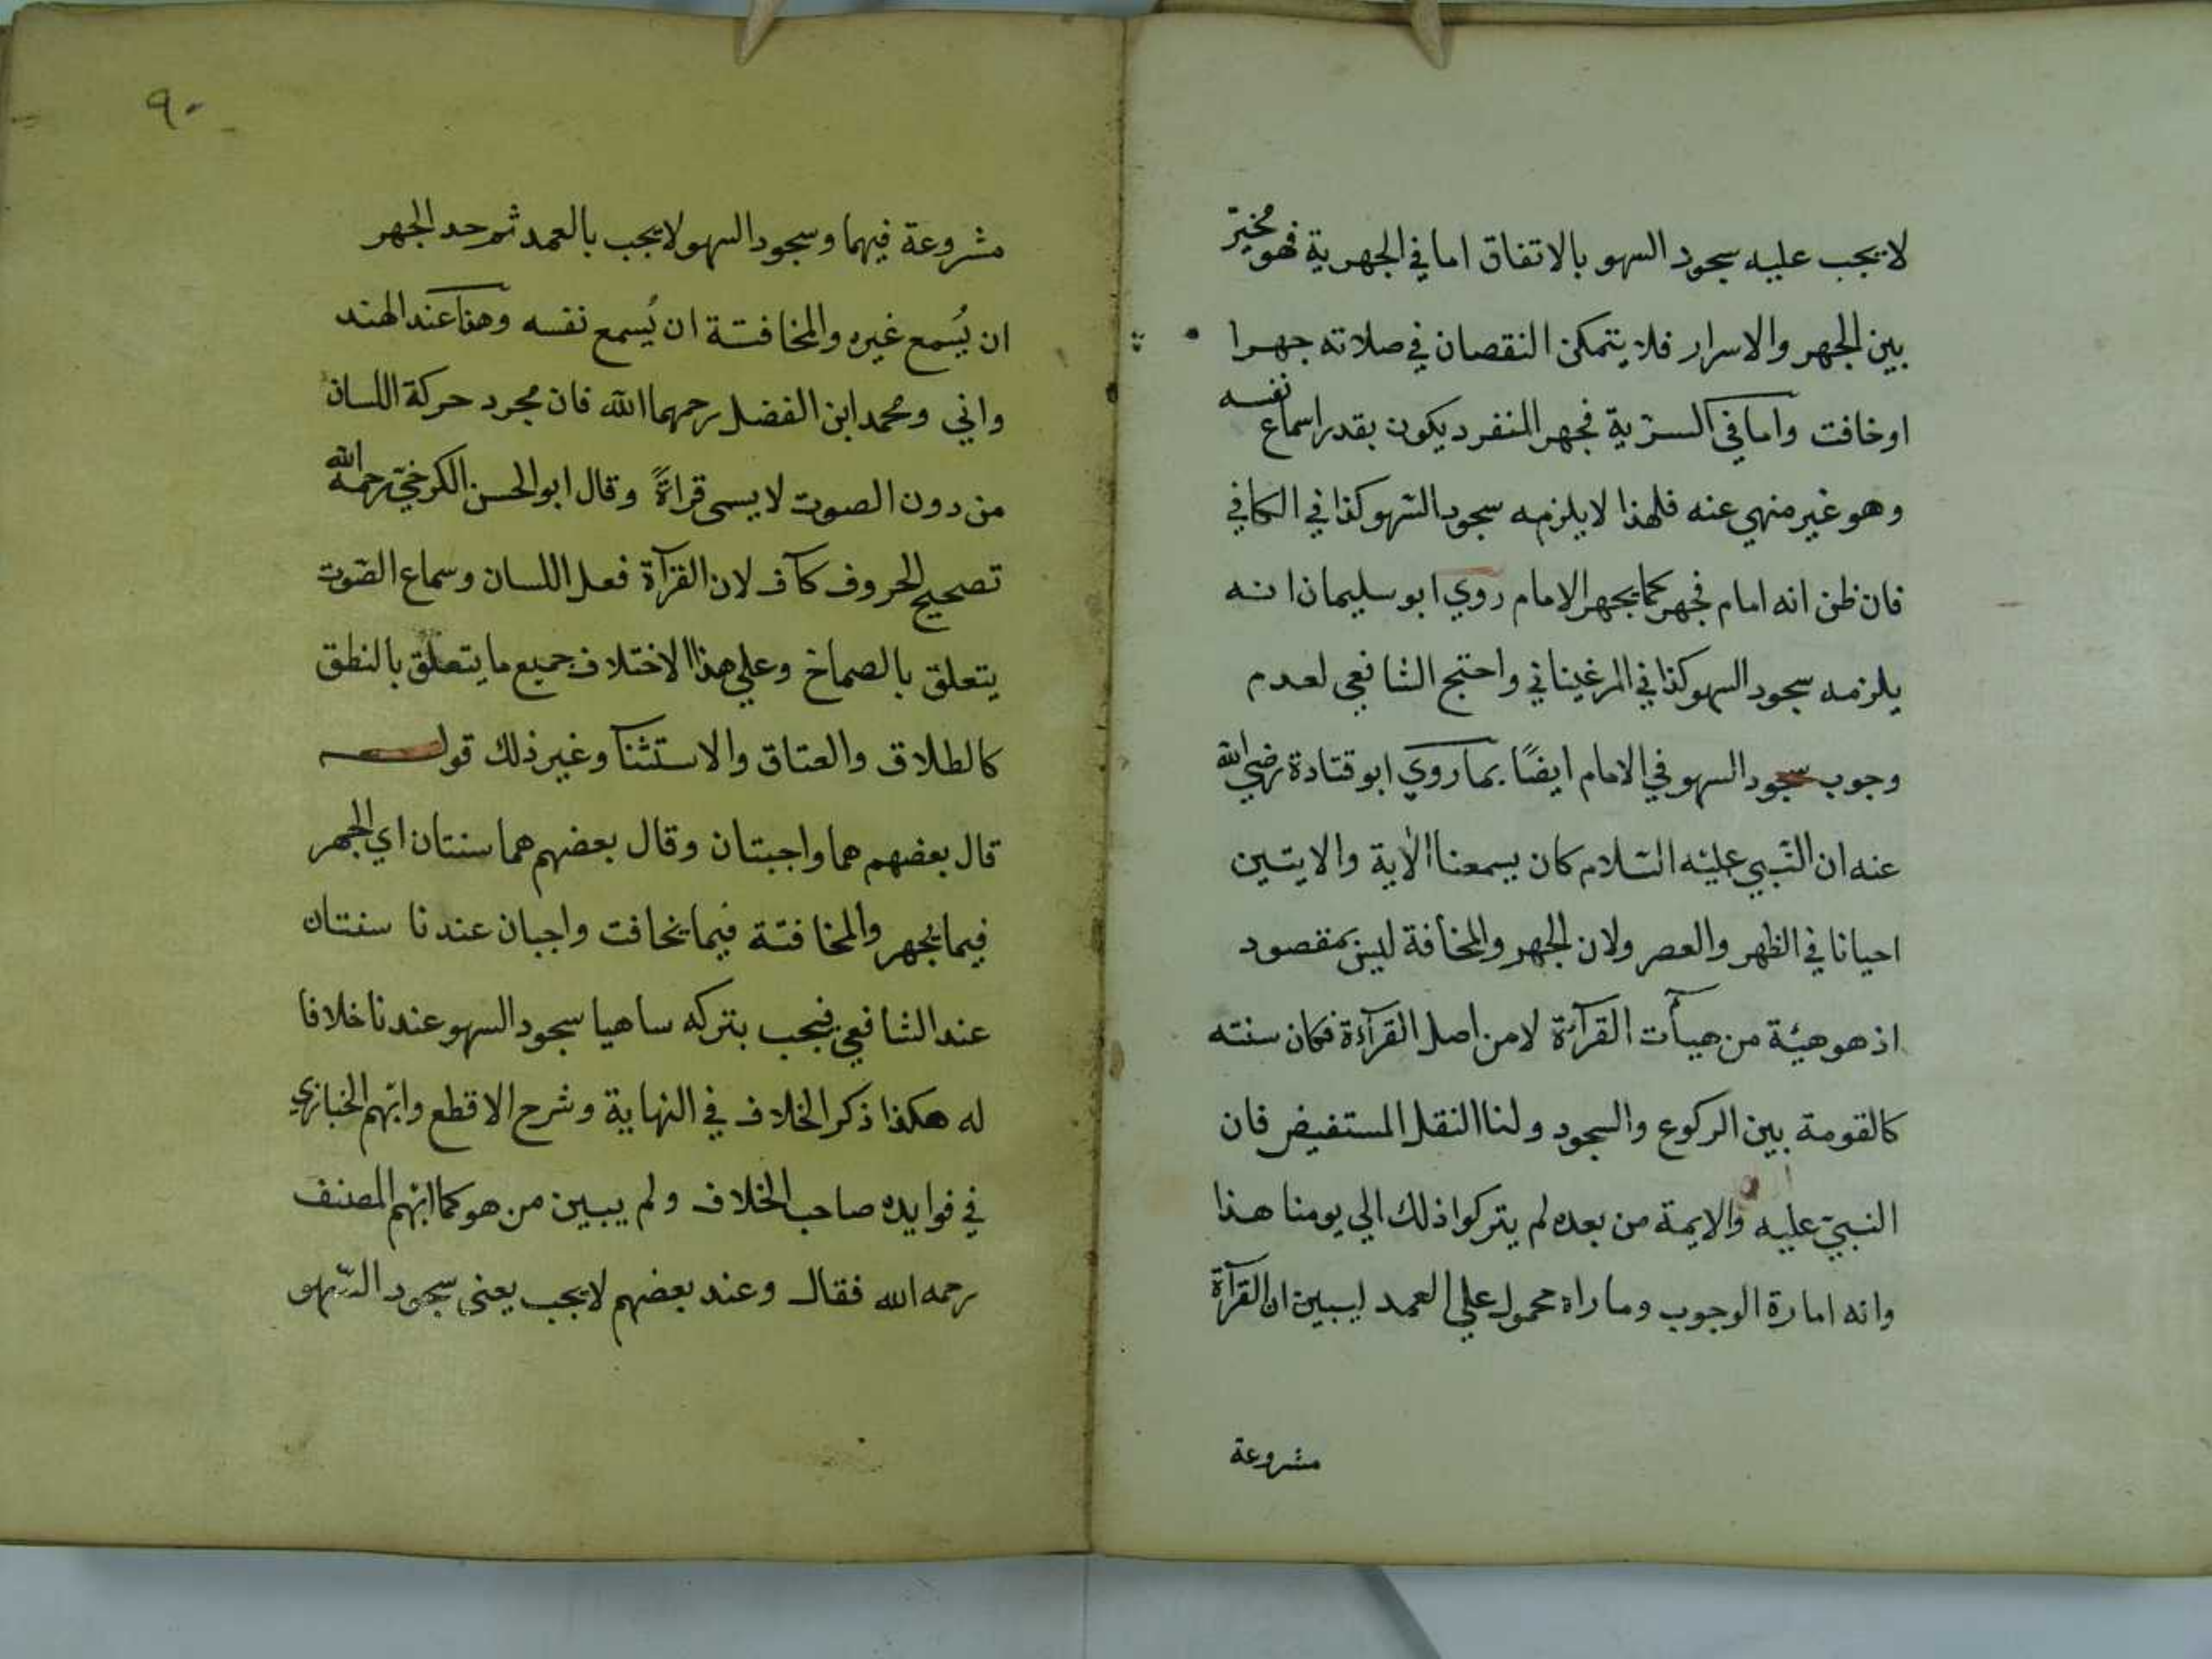 لا يجب عليه سجود السهو بالاتفاق اما في الجهرية فهو مخيّر
بين الجهر والاسرار فلا يتمكن النقصان في صلاته جهرا
اوخافت واما في السرّية فجهر المنفرد يكون بقدر اسماع نفسه
وهو غير منهي عنه فلهذا لا يلزمه سجود السّهو كذا في الكافي
فان ظن انه امام فجهر كما يجهر الامام روي ابو سليمان انه
يلزمه سجود السهو كذا في المرغيناني واحتج الشافعي لعدم
وجوب سجود السهو في الامام ايضًا بما روي ابو قتادة رضي الله
عنه ان النّبي عليه السّلام كان يسمعنا الاية والايتين
احيانا في الظهر والعصر ولان الجهر والمخافة ليس بمقصود
اذ هو هيئة من هيأت القرآءة لا من اصل القرآءة فكان سنته
كالقومة بين الركوع والسجود ولنا النقل المستفيض فان
النبيّ عليه والايمة من بعده لم يتركوا ذلك الي يومنا هذا
وانه امارة الوجوب وما راه محمول علي العمد ليبين ان القرآة
مشروعة
٩٠
مشروعة فيهما وسجود السهو لا يجب بالعمد ثم حد الجهر
ان يُسمع غيره والمخافتة ان يُسمع نفسه وهذا عند الهند
واني ومحمد ابن الفضل رحمهما الله فان مجرد حركة اللسان
من دون الصوت لا يسمى قراةً وقال ابو الحسن الكرخيّ رحمه الله
تصحيح الحروف كاف لان القرآة فعل اللسان وسماع الصّوت
يتعلق بالصماخ وعلي هذا الاختلاف جميع ما يتعلق بالنطق
كالطلاق والعتاق والاستثنا وغير ذلك قوله
قال بعضهم هما واجبتان وقال بعضهم هما سنتان اي الجهر
فيما يجهر والمخافتة فيما يخافت واجبان عندنا سنتان
عند الشافعي فيجب بتركه ساهيا سجود السهو عندنا خلافا
له هكذا ذكر الخلاف في النهاية وشرح الاقطع وابهم الخبازي
في فوايده صاحب الخلاف ولم يبين من هو كما ابهم المصنف
رحمه الله فقال وعند بعضهم لا يجب يعني سجود السّهو